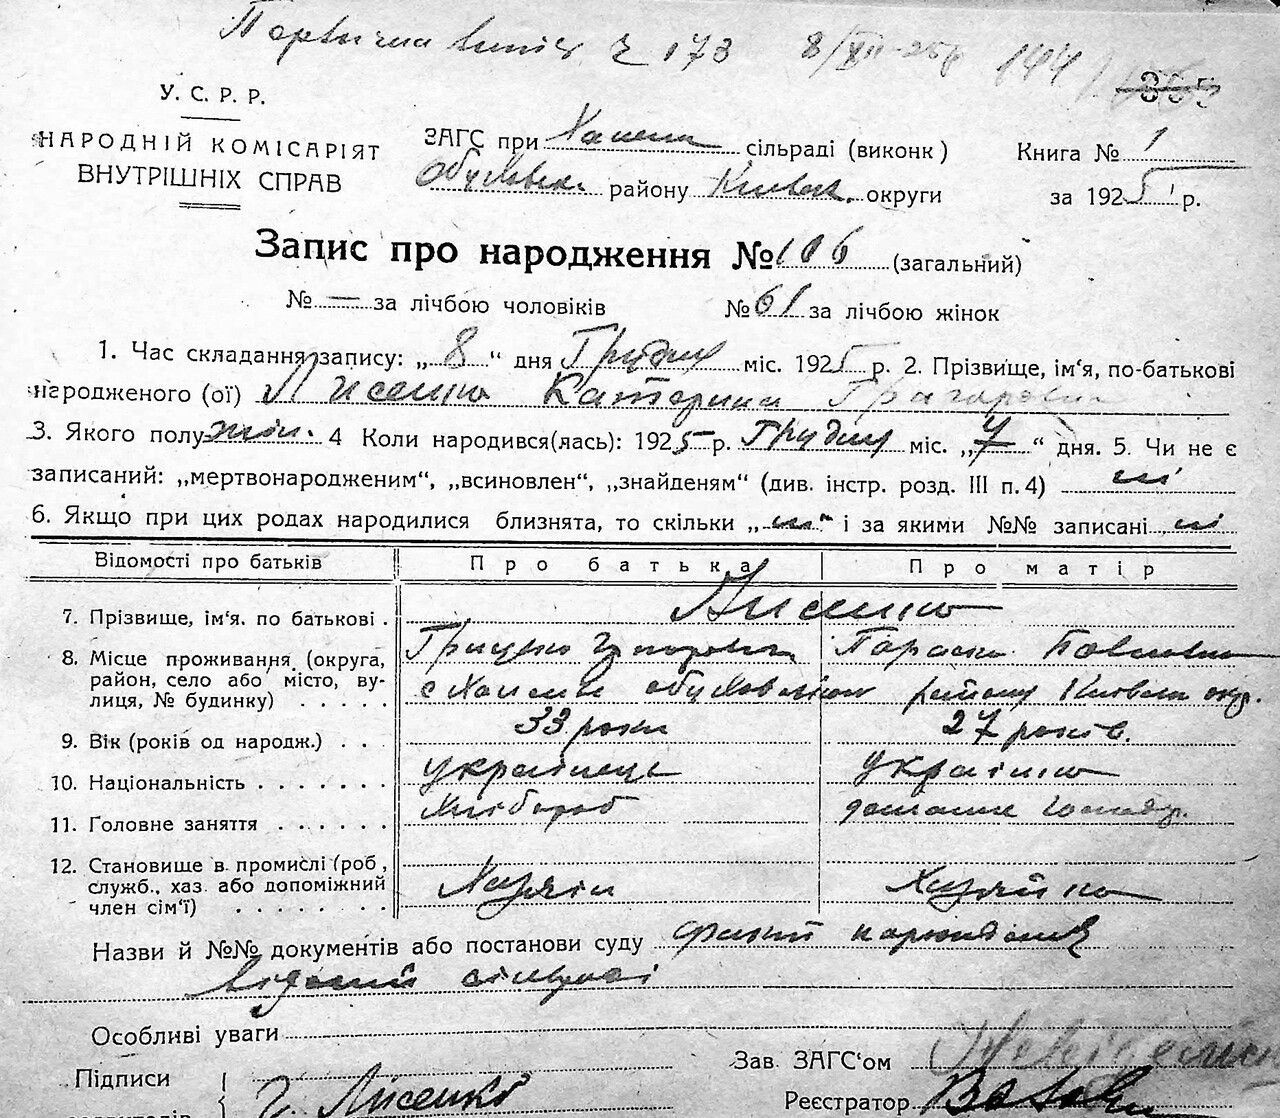 Первична випись Ч 173 8/XII-25р 144
355
У. С. Р. Р.
НАРОДНІЙ КОМІСАРІЯТ
ВНУТРІШНІХ СПРАВ
ЗАГС при сільраді (виконк)
району Київськ. округи
Книга № 1
за 1925 р.
Запис про народження № 106 (загальний)
№ — за лічбою чоловіків № 61 за лічбою жінок
1. Час складання запису: „8“ дня Грудня міс. 1925 р. 2. Прізвище, ім'я, по-батькові
народженого (ої) Лисенко Катерина Григоровна
3. Якого полу жін. 4 Коли народився(лась): 1925 р. Грудня міс. „7“ дня. 5. Чи не є
записаний: „мертвонародженим“, „всиновлен“, „знайденям“ (див. інстр. розд. III п. 4) ні
6. Якщо при цих родах народилися близнята, то скільки „ні“ і за якими №№ записані ні
Відомості про батьків Про батька Про матір
7. Прізвище, ім'я. по батькові . Лисенко
Грицько Параска Павловна
8. Місце проживання (округа,
район, село або місто, ву-
лиця, № будинку) . . . . . району Київськ окр.
9. Вік (років од народж.) . . . 33 роки 27 років.
10. Національність . . . . . . . українець українка
11. Головне заняття . . . . . . Хлібороб домашнє господ.
12. Становище в. промислі (роб,
служб., хаз. або допоміжний
член сім'ї) . . . . . . . Хазяїн Хазяйка
Назви й №№ документів або постанови суду
відомий сільраді
Особливі уваги
Зав. ЗАГС'ом
Підписи Г. Лисенко
Реєстратор